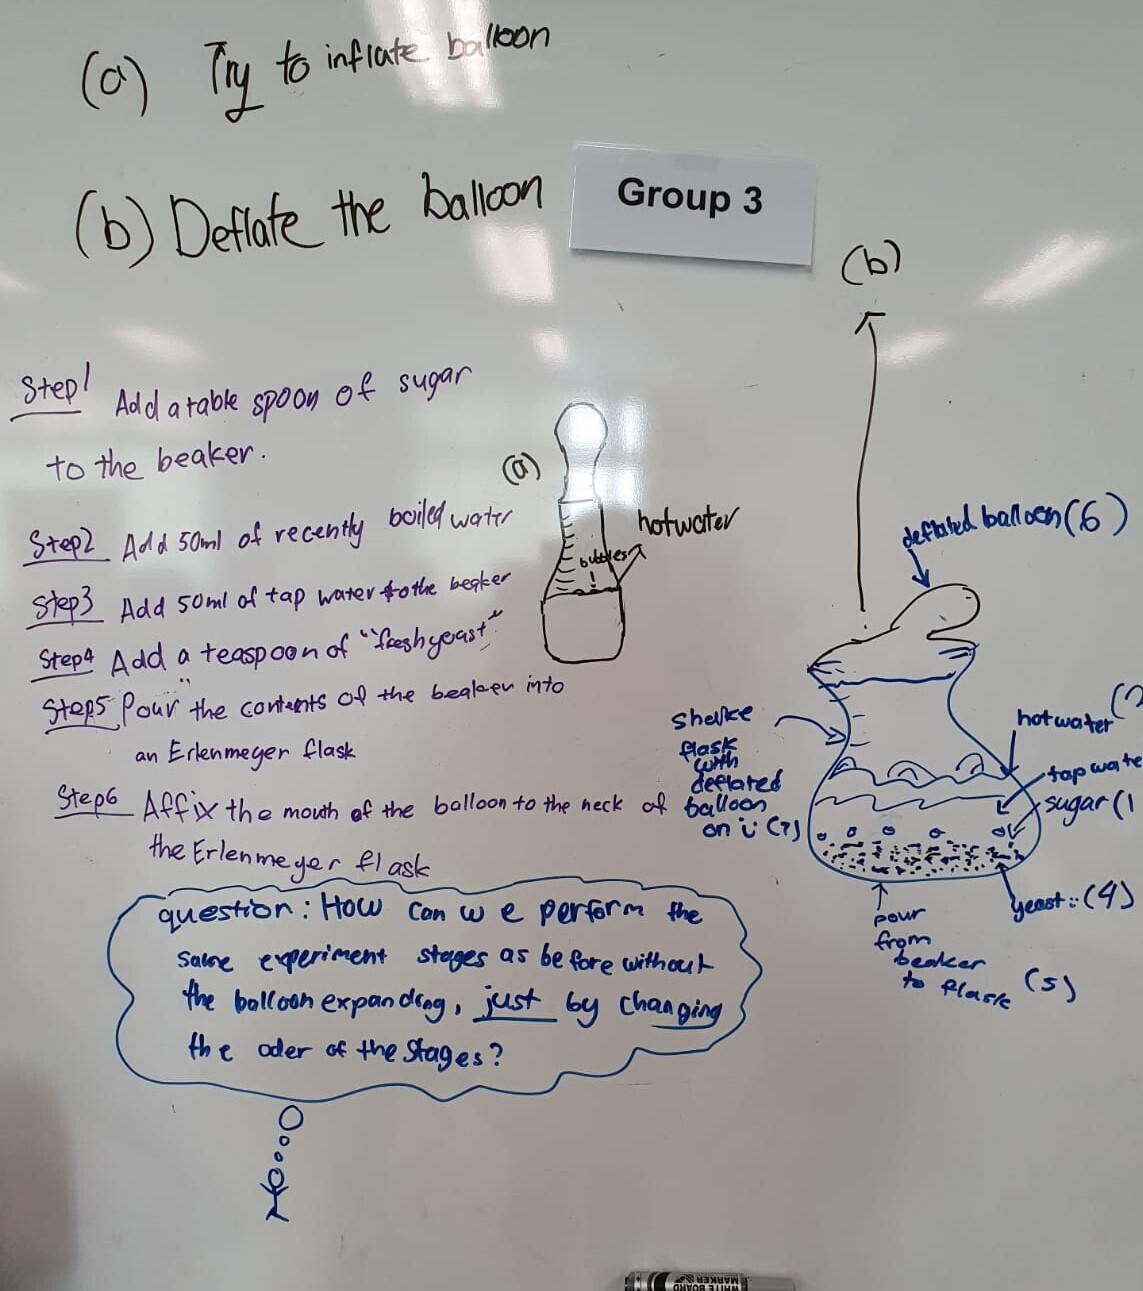 (a) Try to inflate balloon
(b) Deflate the balloon
Group 3
(b)
Step1 Add a table spoon of sugar
to the beaker.
Step2 Add 50ml of recently boiled water
Step3 Add 50ml of tap water to the beaker
Step4 Add a teaspoon of "fresh yeast"
Step5 Pour the contents of the beaker into
an Erlenmeyer flask
Step6 Affix the mouth of the balloon to the neck of
the Erlenmeyer flask
(a)
hot water
bubbles
deflated balloon (6)
shake
flask
with
deflated
balloon
on
hot water
tap wate
sugar (1
yeast (4)
pour
from
beaker
to flask (5)
question: How can we perform the
same experiment stages as before without
the balloon expanding, just by changing
the oder of the stages?
WHITE BOARD
MARKER